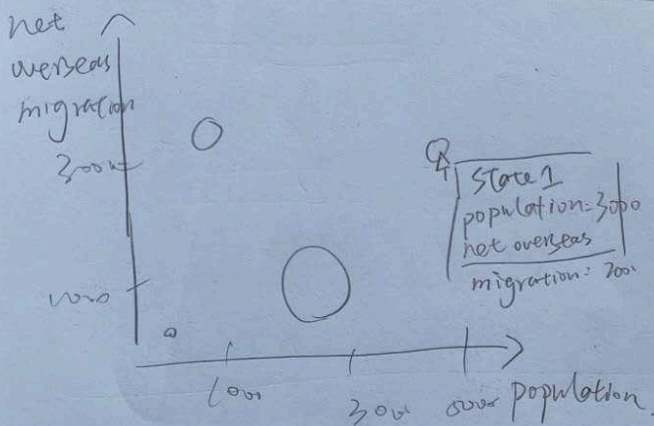 net
overseas
migration
3000
1000
State 1
population = 3000
net overseas
migration:
1000
3000
5000
population